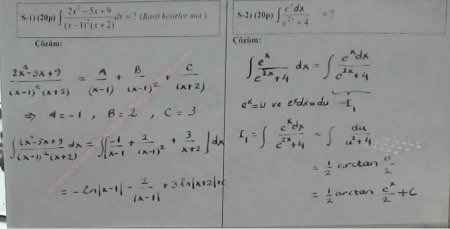 S-1) (20p) ∫ (2x²-5x+9)/((x-1)²(x+2)) dx = ? (Basit kesirler met.)
Çözüm:
(2x²-5x+9)/((x-1)²(x+2)) = A/(x-1) + B/(x-1)² + C/(x+2)
⇒ A=-1, B=2, C=3
∫ (2x²-5x+9)/((x-1)²(x+2)) dx = ∫[-1/(x-1) + 2/(x-1)² + 3/(x+2)] dx
= -ln|x-1| - 2/(x-1) + 3ln|x+2|+c
S-2) (20p) ∫ eˣdx/(e²ˣ+4) = ?
Çözüm:
∫ eˣ/(e²ˣ+4) dx = ∫ eˣdx/(e²ˣ+4)
eˣ=u ve eˣdx=du I₁
I₁ = ∫ eˣdx/(e²ˣ+4) = ∫ du/(u²+4)
= 1/2 arctan u/2
= 1/2 arctan eˣ/2 + C